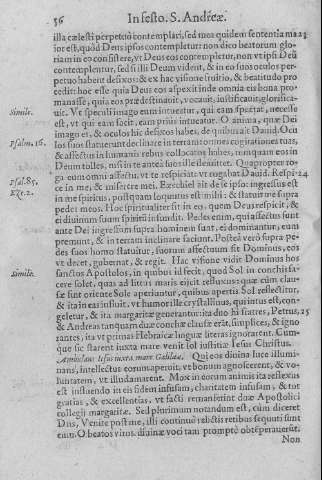 56 In festo. S. Andreæ.
illa cælesti perpetuò contemplari, sed mea quidem sententia ma 23
ior est, quòd Deus ipsos contempletur: non dico beatorum glo-
riam in eo consistere, vt Deus eos contempletur, non vt ipsi Deũ
contemplentur, sed si illi Deum vident, & in eo suos oculos per-
petuo habent defixos: & ex hac visione fruitio, & beatitudo pro
cedit: hoc esse quia Deus eos aspexit inde omnia eis bona pro-
manasse, quia eos prædestinauit, vocauit, iustificauit, glorifica-
Simile. uit. Vt speculi imago eum intuetur, qui eam spectat, necesse
est, vt qui eam facit, eum prius intuetur. O anima, quæ Dei
imago es, & oculos hic defixos habes, de quibus ait Dauid. Ocu
Psalm. 16. los suos statuerunt declinare in terram: omnes cogitationes tuas,
& affectus in humanis rebus collocatos habes, nunquam eos in
Deum tolles, nisi is te antea suis ille deuiitet. Quapropter ro-
ga eum omni affectu, vt te respiciat, vt rogabat Dauid. Respi- 24
Psal. 85. ce in me, & miserere mei. Ezechiel ait de se ipso: ingressus est
Eze. 2. in me spiritus, postquam loquutus est mihi: & statuit me supra
pedes meos. Hoc spiritualiter fit in eo, quem Deus respicit, &
ei diuinum suum spiritum infundit. Pedes enim, qui affectus sunt
ante Dei ingressum supra hominem sunt, ei dominantur, eum
premunt, & in terram inclinare faciunt. Posteà verò supra pe-
des suos homo statuitur, suorum affectuum fit Dominus, eos
vt decet, gubernat, & regit. Hac visione vidit Dominus hos
Simile. sanctos Apostolos, in quibus id fecit, quod Sol in conchis fa-
cere solet, quas ad littus maris eijcit refluxus: quæ cũm clau-
sæ sint oriente Sole aperiuntur, quibus apertis Sol reflectitur,
& ita in eas influit, vt humor ille crystallinus, qui intus est, con-
geletur, & ita margaritæ generantur: ita duo hi fratres, Petrus, 25
& Andreas tanquam duæ conchæ clausæ erãt, simplices, & igno
rantes, ita vt primas Hebraicæ linguæ literas ignorarent. Cum-
que sic starent iuxta mare venit Sol iustitiæ Iesus Christus.
Ambulans Iesus iuxta mare Galileæ. Qui eos diuina luce illumi-
nans, intellectus eorum aperuit, vt bonum agnoscerent, & vo-
luntatem, vt id amarent. Mox in eorum animis ita reflexus
est insluendo in eis fidem insusam, charitatem infusam, & tot
gratias, & excellentias, vt facti remanserint duæ Apostolici
collegij margaritæ. Sed plurimum notandum est, cùm diceret
Dñs, Venite post me, illi continuò relictis retibus sequuti sunt
eum. O beatos viros, diuinæ voci tam promptè obtemperauerũt.
Non